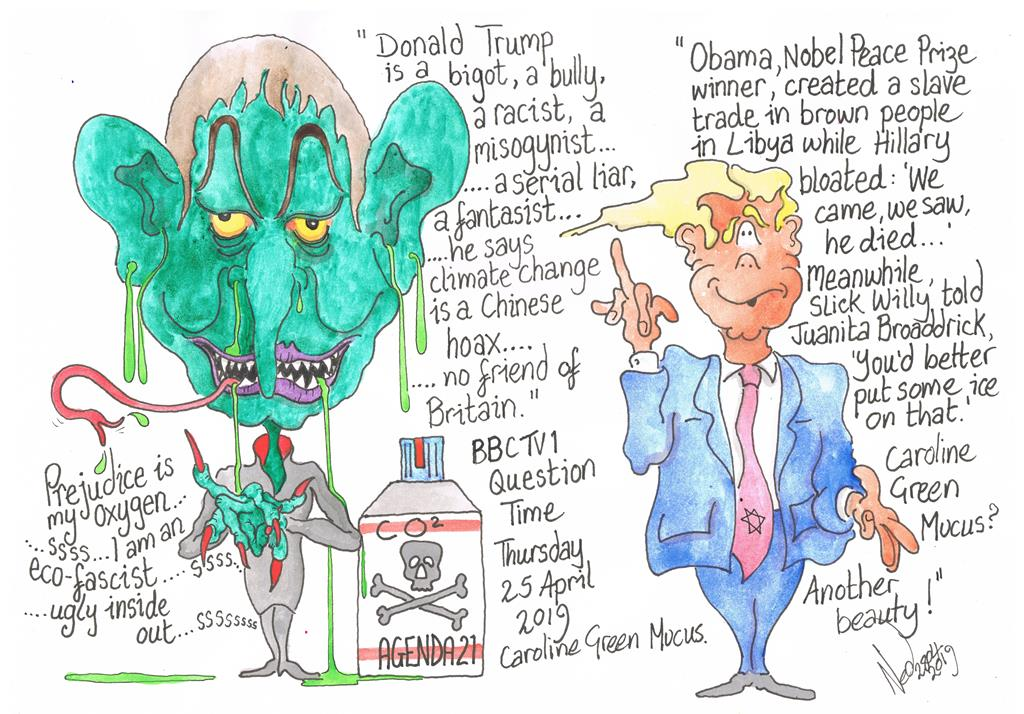 " Donald Trump
is a bigot, a bully,
a racist, a
misogynist...
.... a serial liar,
a fantasist...
....he says
climate change
is a Chinese
hoax....
.... no friend of
Britain."
BBCTV1
Question
Time
Thursday
25 April
2019
Caroline Green Mucus.
Prejudice is
my oxygen...
...ssss...I am an
eco-fascist .... ssss...
....ugly inside
out... ssssssss
CO²
AGENDA21
" Obama, Nobel Peace Prize
winner, created a slave
trade in brown people
in Libya while Hillary
bloated: 'We
came, we saw,
he died...'
Meanwhile,
Slick Willy told
Juanita Broaddrick,
'you'd better
put some ice
on that.'
Caroline
Green
Mucus?
Another
beauty!"